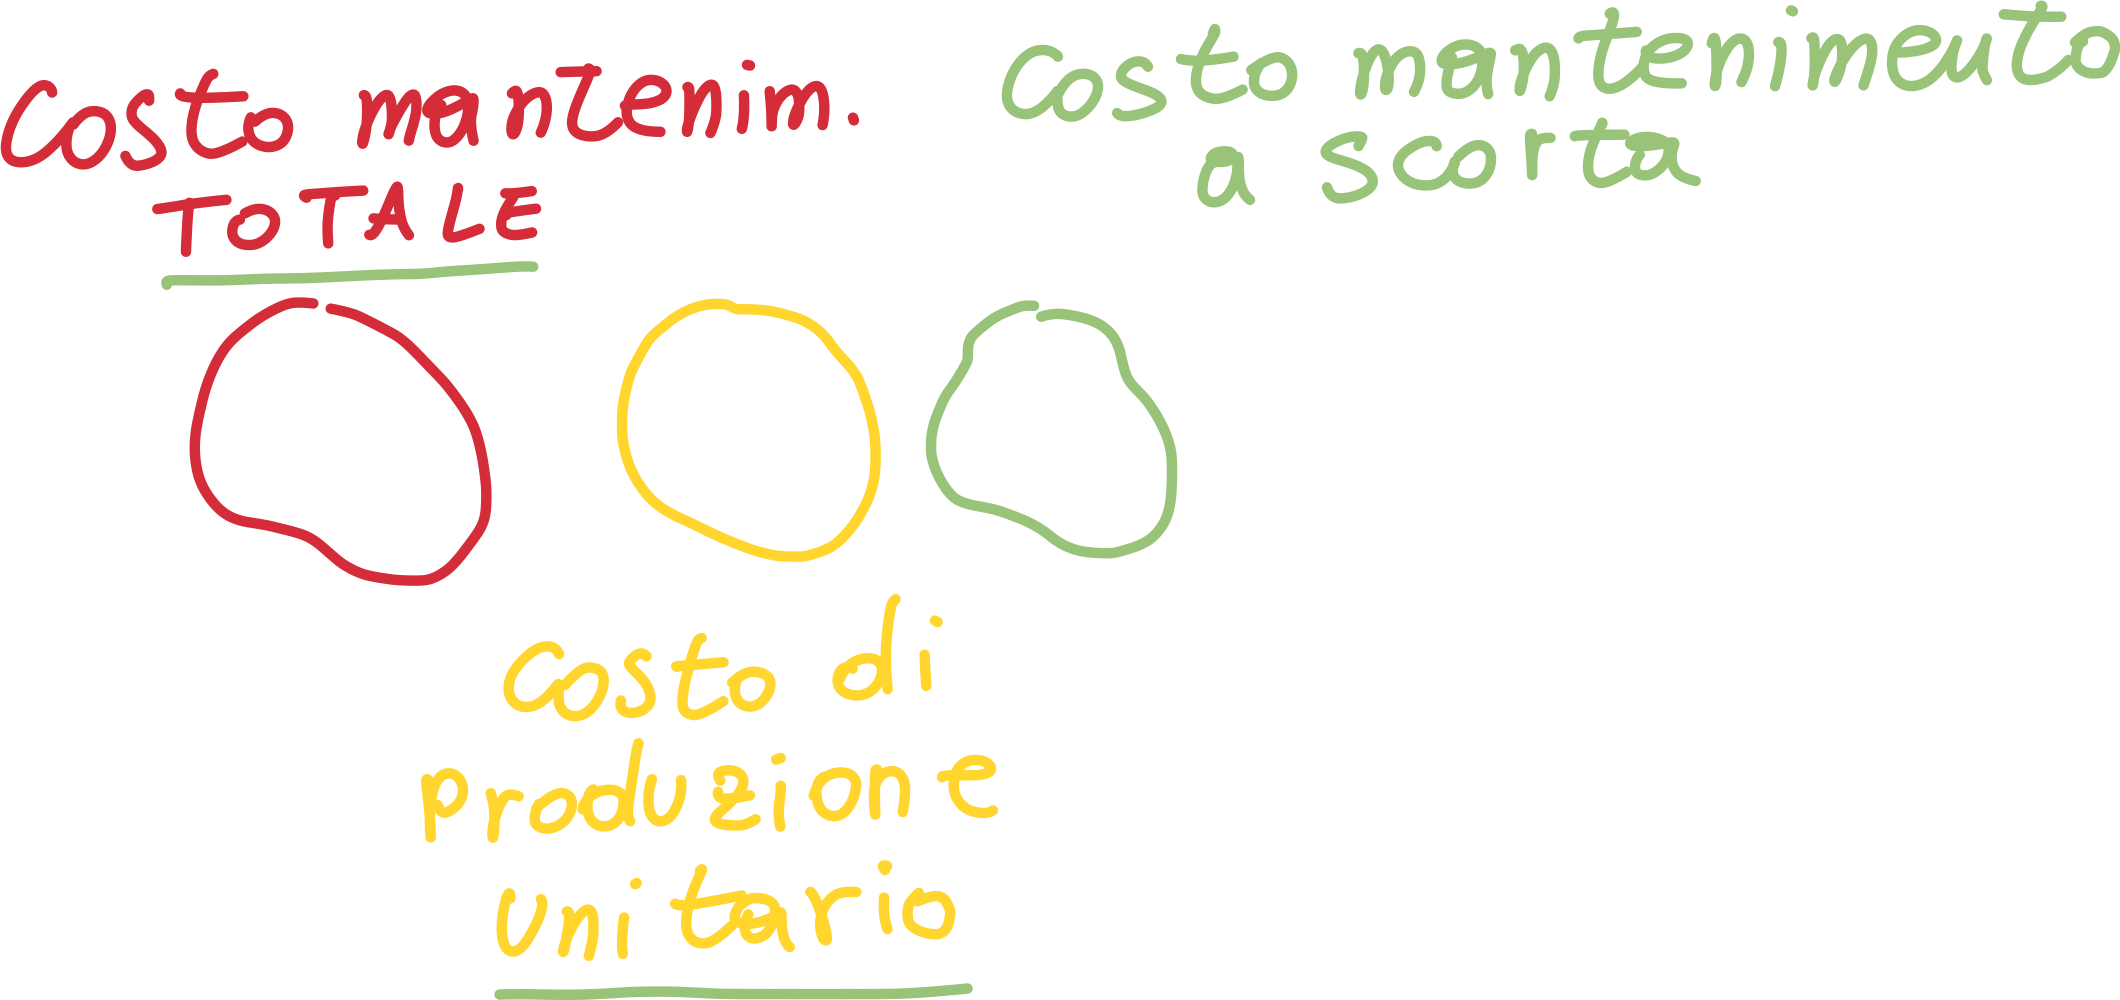 Costo mantenim.
TOTALE
Costo mantenimento
a scorta
Costo di
produzione
unitario